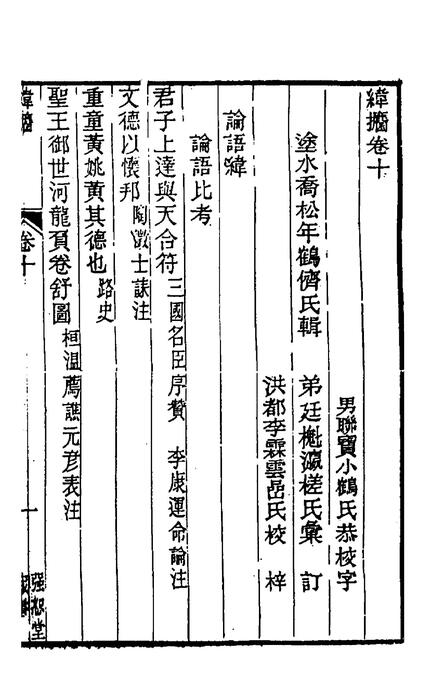 緯攟卷十
男聯寶小鶴氏恭校字
塗水喬松年鶴儕氏輯 弟廷櫆瀛槎氏彙訂
洪都李霖雲嵒氏校梓
論語緯
論語比考
君子上達與天合符三國名臣序贊 李康運命論注
文德以懷邦陶徵士誄注
重童黃姚黃其德也路史
聖王御世河龍負卷舒圖桓溫薦譙元彥表注
卷十
一
强恕堂